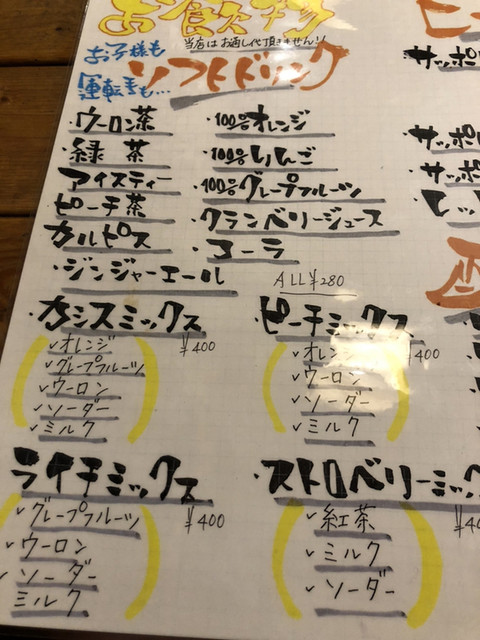 お飲み物
当店はお通し代頂きません!!
お子様も
運転手も...
ソフトドリンク
・ウーロン茶
・緑茶
・アイスティー
・ピーチ茶
・カルピス
・ジンジャーエール
・100%オレンジ
・100%りんご
・100%グレープフルーツ
・クランベリージュース
・コーラ
ALL ¥280
・カシスミックス
¥400
✓オレンジ
✓グレープフルーツ
✓ウーロン
✓ソーダー
✓ミルク
・ピーチミックス
¥400
✓オレンジ
✓ウーロン
✓ソーダー
✓ミルク
ライチミックス
¥400
✓グレープフルーツ
✓ウーロン
✓ソーダー
ミルク
・ストロベリーミックス
¥40
✓紅茶
✓ミルク
✓ソーダー
・サッポ
・サッポ